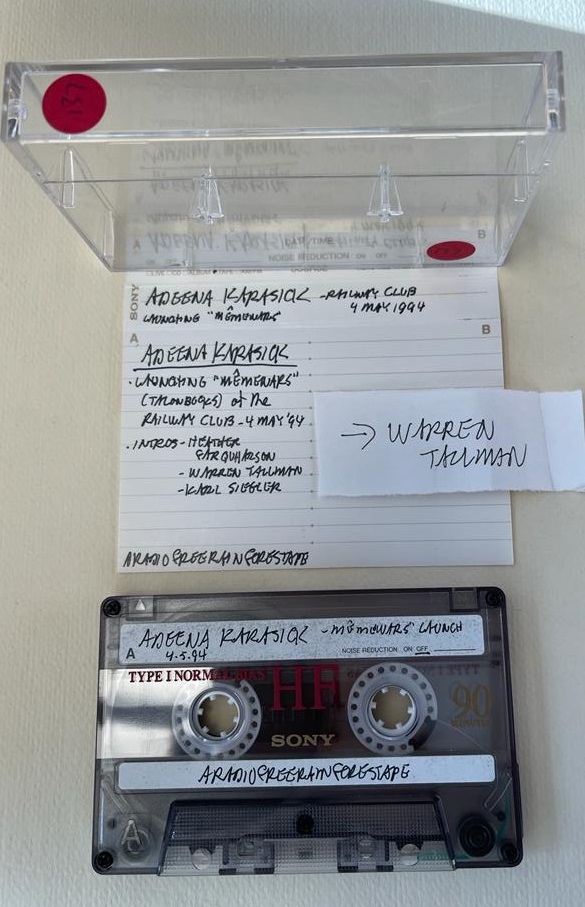 137
B
NOISE REDUCTION ON OFF
SONY
ADEENA KARASICK -RAILWAY CLUB
LAUNCHING "MÊMEWARS" 4 MAY 1994
A
B
ADEENA KARASICK
·LAUNCHING "MÊMEWARS"
(TALONBOOKS) at the
RAILWAY CLUB-4 MAY '94
·INTROS-HEATHER
FARQUHARSON
-WARREN TALLMAN
-KARL SIEGLER
→ WARREN
TALLMAN
ARADIOFREERAINFORESTAPE
ADEENA KARASICK -"MÊMEWARS" LAUNCH
A 4.5.94 NOISE REDUCTION ON OFF
TYPE I NORMAL BIAS
HF
90
SONY
ARADIOFREERAINFORESTAPE
A